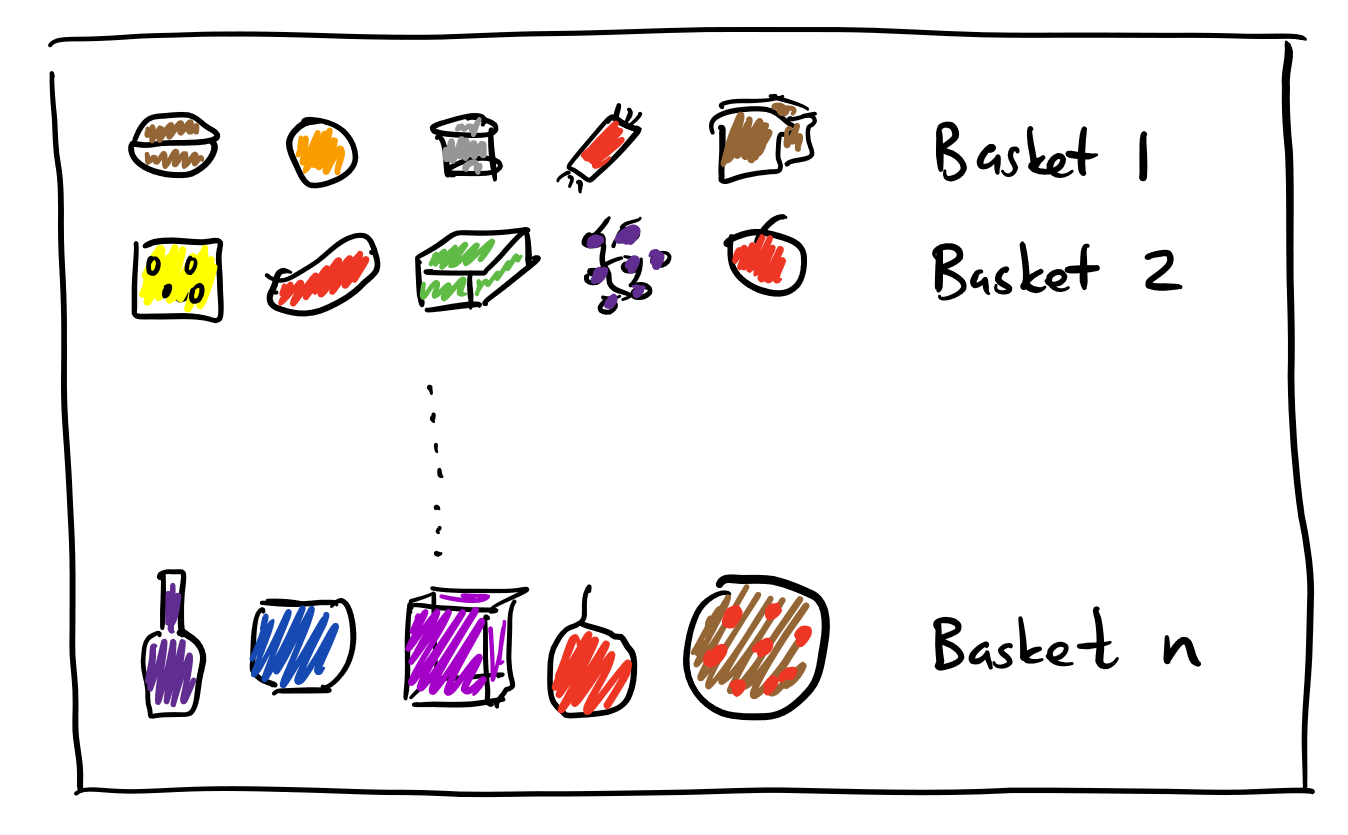 Basket 1
Basket 2
Basket n